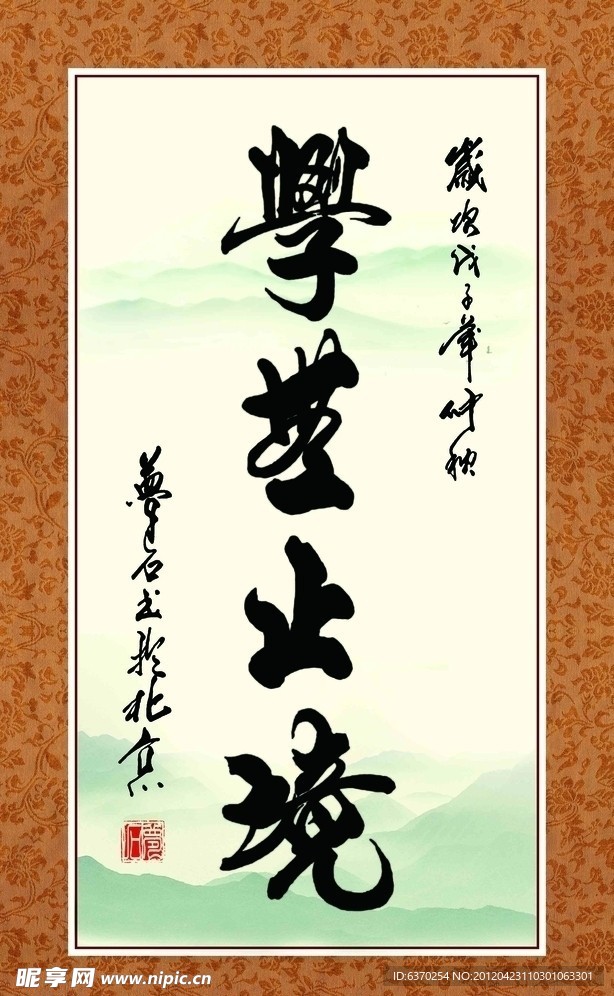 歲次戊子年仲秋
學無止境
夢石书於北京
夢石
昵享网 www.nipic.cn
ID:6370254 NO:20120423110301063301